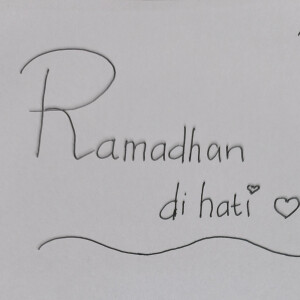 Ramadhan
di hati ♡